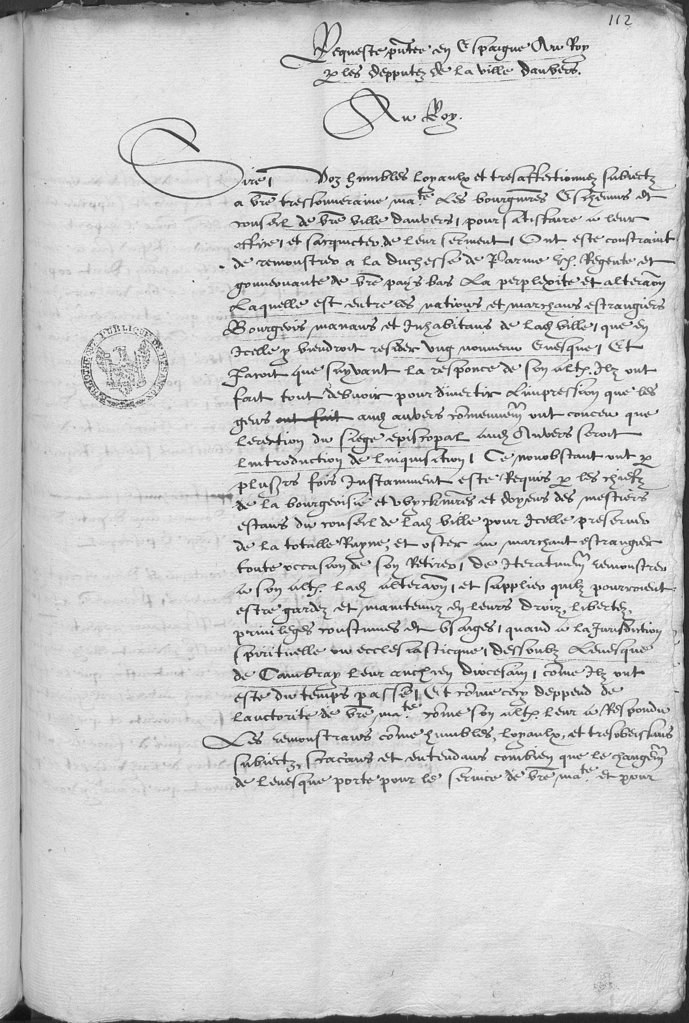 112
Requeste pntee en Espaigne Au Roy
p les depputez de la ville danvers.
Au Roy.
Sire, Voz humbles loyaulx et tresaffectionnez subiectz
a vre tressouueraine mate Les bourgmres Escheuins et
conseil de vre ville danvers, pour satisfaire a leur
office, et sacquicter de leur serment, Ont este constraint
de remonstrer a la duchesse de Parme Regente et
gouuernante de vre pays bas La perplexite et alteraon
Laquelle est entre les nations et marchans estrangiers
Bourgeois manans et Inhabitans de lad ville, que en
Icelle p viendroit resider ung nouueau Euesque, Et
Jacoit que suyuant la responce de son altze Ilz ont
fait tout debuoir pour diuertir Limpression que les
gens ont fait aud anvers comunement ont conceu que
Lerection du siege episcopal aud Anvers seroit
Lintroduction de linquisition, Ce nonobstant ont p
plusrs fois Instamment este Requis p les chiefz
de la bourgeoisie et doyens des mestiers
estans du conseil de lad ville pour Icelle preseruer
de la totalle Ruyne, et oster au marchant estrangier
toute occasion de son Retirer, de Iteratiuemt remonstrer
a son altze lad alteraon, et supplier quilz pourroient
estre gardez et maintenuz en leurs droiz, libertez,
priuileges coustumes et usaiges, quand a la Jurisdiction
spirituelle ou ecclesiasticque, dessoubz Leuesque
de Cambray leur anchien diocesain, come Ilz ont
este du temps passe, Et come cecy deppend de
lauctorite de vre mate come son altze leur a Respondu
Les remonstrans come humbles, loyaulx, et tresobeissans
subiectz, scachans et entendans combien que le changemt
de leuesque porte pour le seruice de vre mate et pour